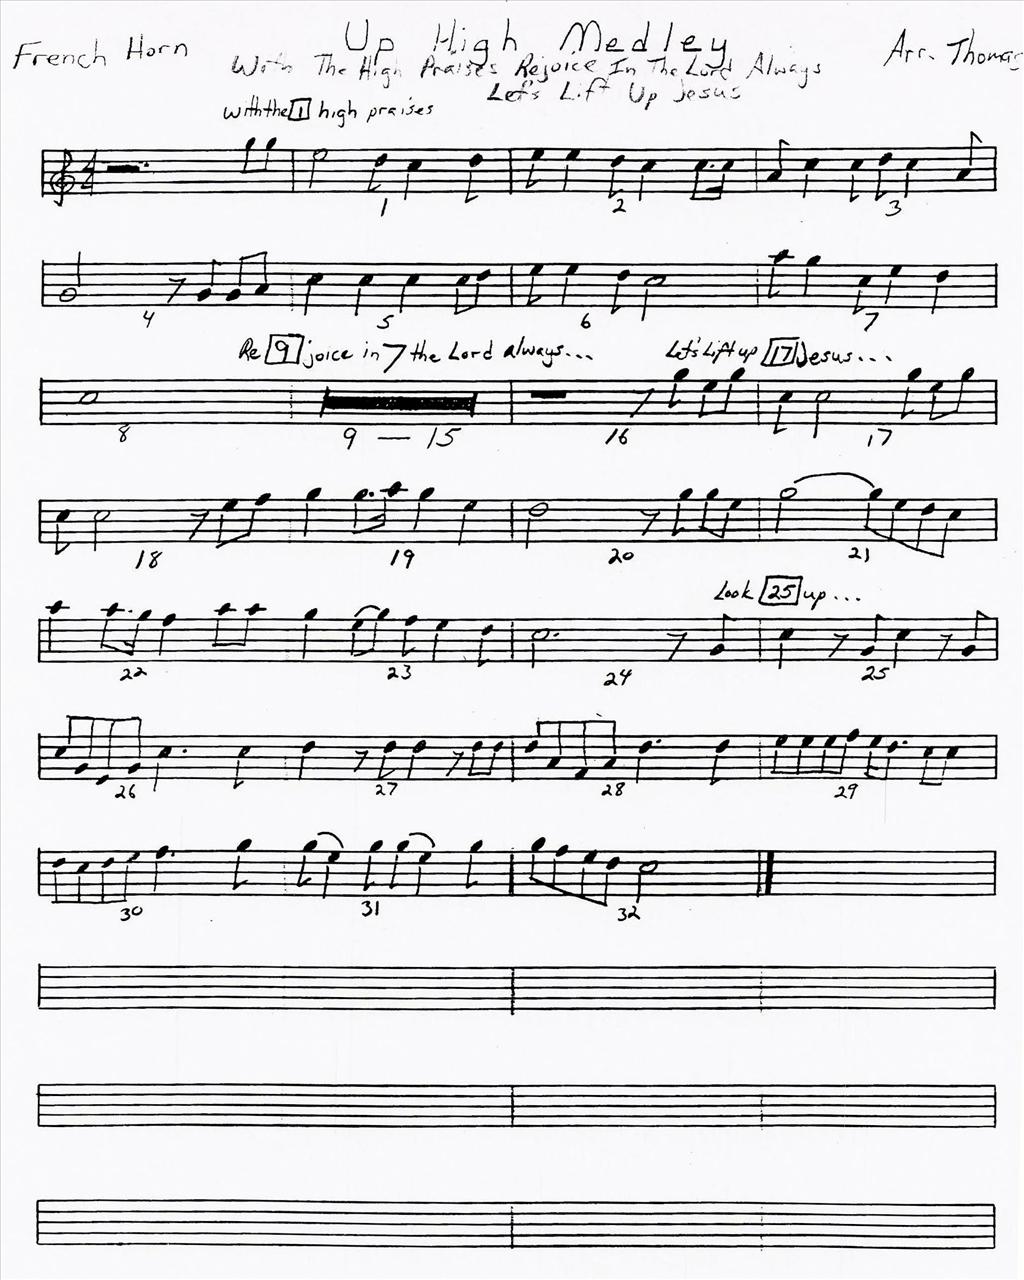 French Horn
Up High Medley
Arr. Thomas
With The High Praises Rejoice In The Lord Always
Let's Lift Up Jesus
with the 1 high praises
4
4
1 2 3
4 5 6 7
Re 9 joice in 7 the Lord always... Let's Lift up 17 Jesus...
8 9 — 15 16 17
18 19 20 21
Look 25 up...
22 23 24 25
26 27 28 29
30 31 32